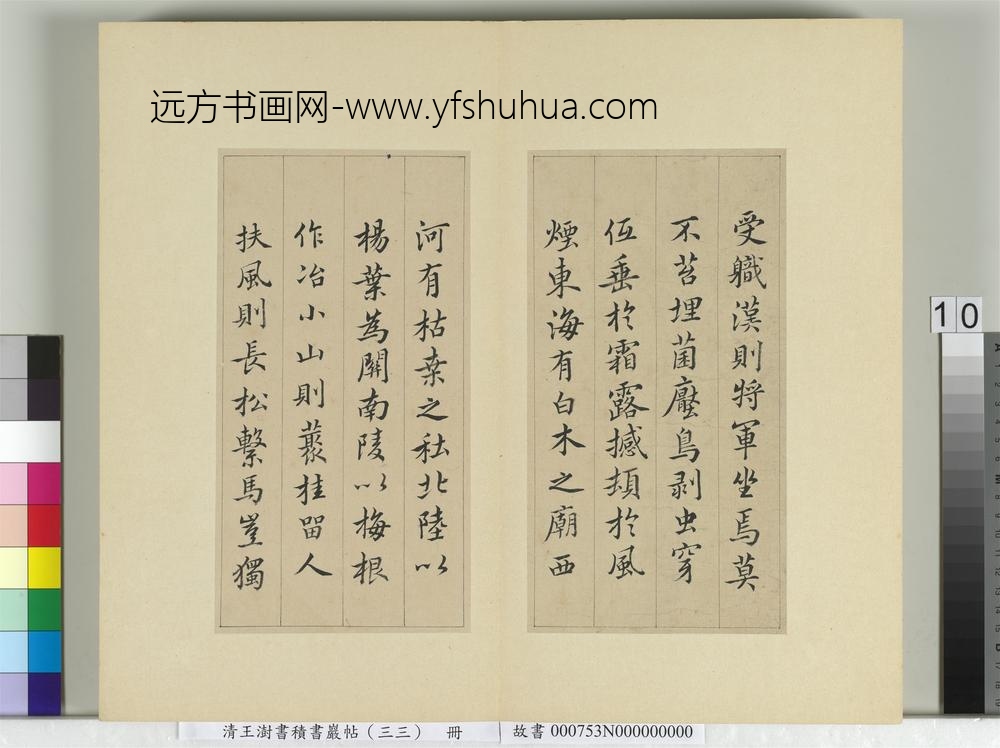 远方书画网-www.yfshuhua.com
受職漢則將軍坐焉莫
不苔埋菌壓鳥剥虫穿
伍垂扵霜露撼頓扵風
煙東海有白木之廟西
河有枯桒之社北陸以
楊葉為關南陵以梅根
作冶小山則叢桂留人
扶風則長松繫馬豈獨
10
清王澍書積書巖帖（三三） 冊
故書 000753N000000000